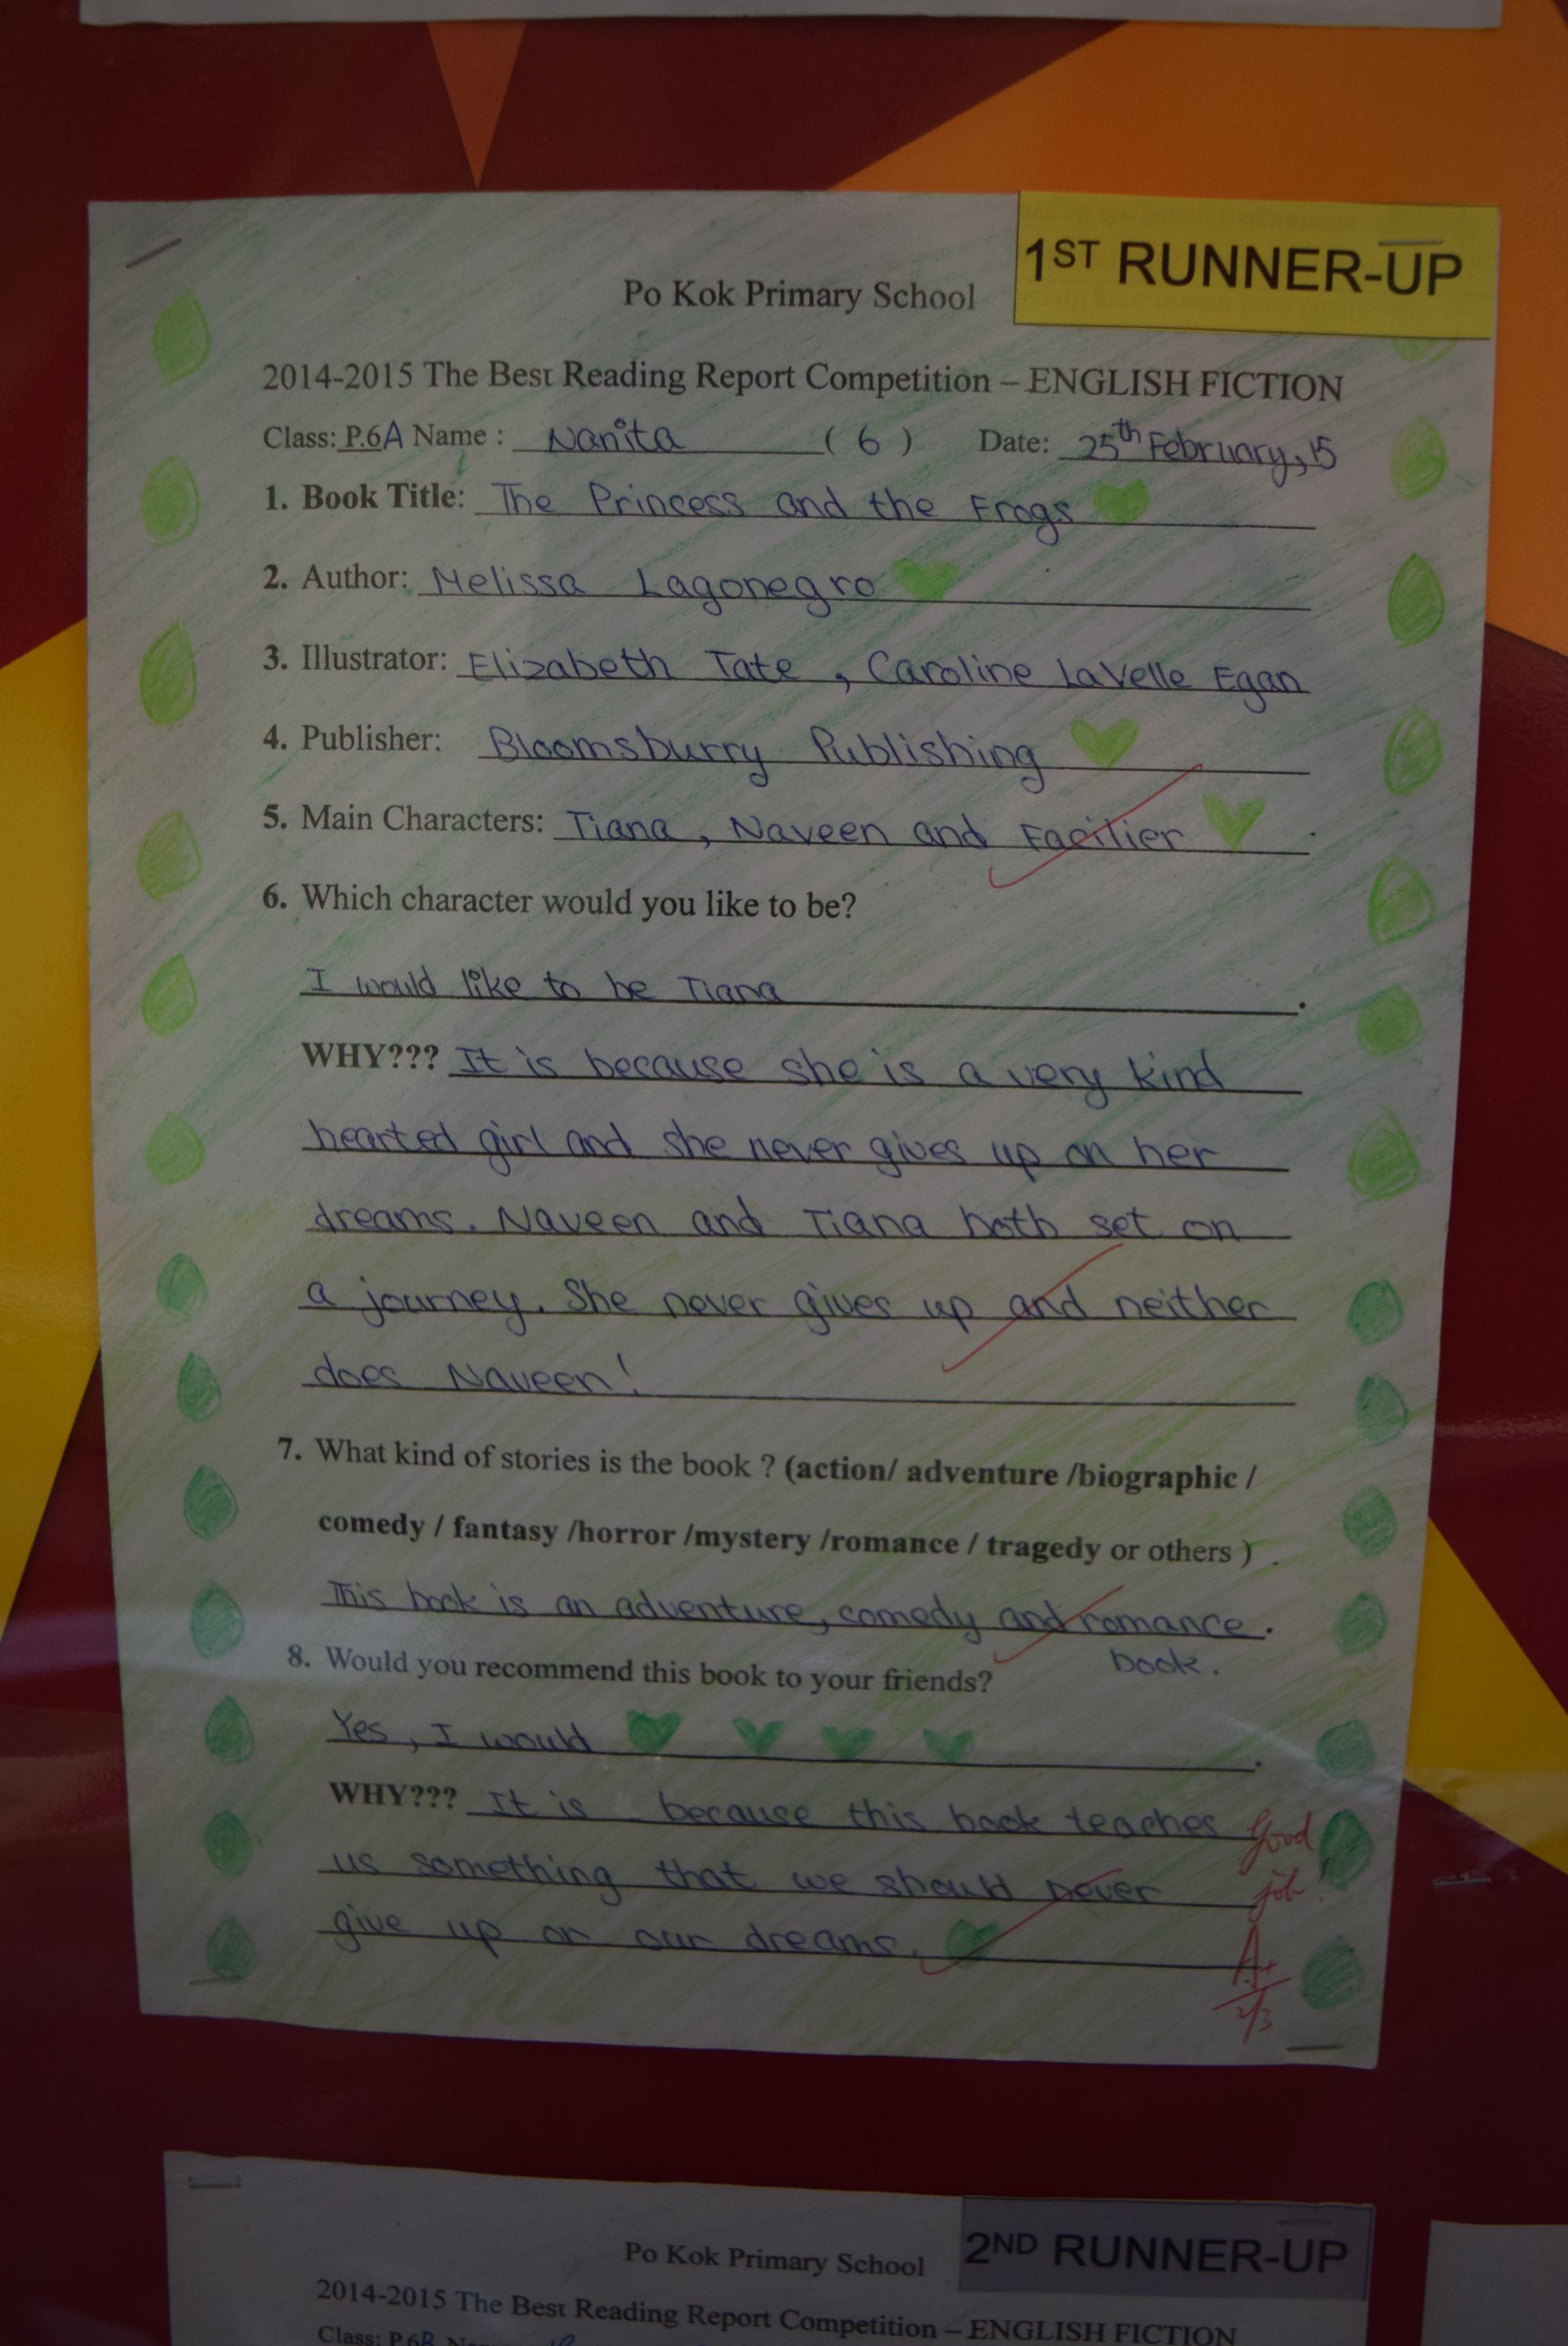 Po Kok Primary School
1ST RUNNER-UP
2014-2015 The Best Reading Report Competition – ENGLISH FICTION
Class: P.6A Name : Nanita ( 6 ) Date: 25th February, 15
1. Book Title: The Princess and the Frogs
2. Author: Melissa Lagonegro
3. Illustrator: Elizabeth Tate , Caroline LaVelle Egan
4. Publisher: Bloomsburry Publishing
5. Main Characters: Tiana , Naveen and Facilier .
6. Which character would you like to be?
I would like to be Tiana .
WHY??? It is because she is a very kind
hearted girl and she never gives up on her
dreams. Naveen and Tiana both set on
a journey. She never gives up and neither
does Naveen!
7. What kind of stories is the book ? (action/ adventure /biographic /
comedy / fantasy /horror /mystery /romance / tragedy or others ) .
This book is an adventure, comedy and romance .
book.
8. Would you recommend this book to your friends?
Yes, I would .
WHY??? It is because this book teaches
us something that we should never
give up on our dreams.
Good
job!
A+
2/3
Po Kok Primary School
2ND RUNNER-UP
2014-2015 The Best Reading Report Competition – ENGLISH FICTION
Class: P.6B